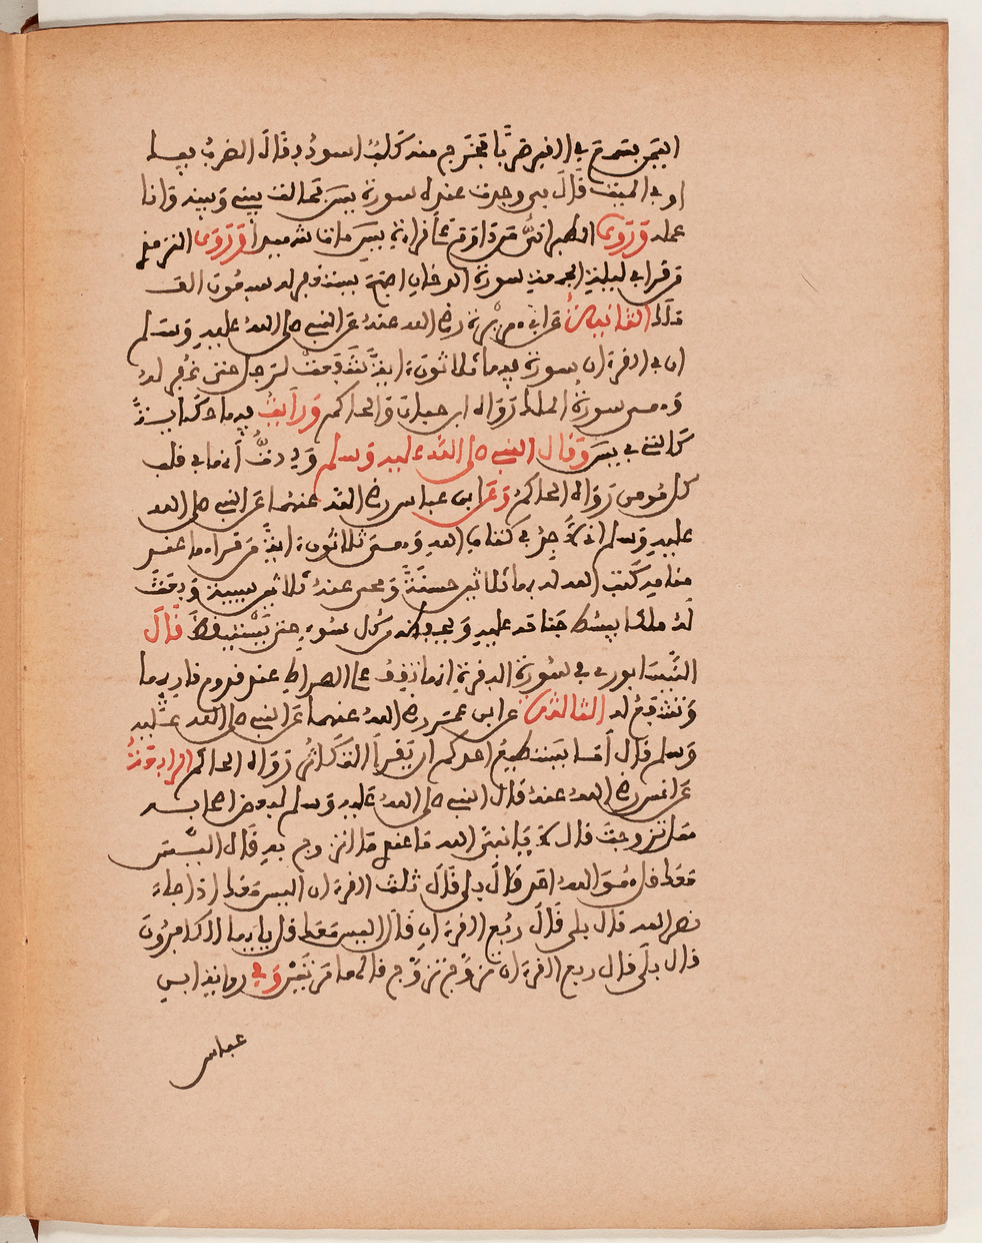 اليمن بسمع في القبر ضربا فخرج منه كلب اسود فقال الضرب فيك
او في الميت قال بي وجدت عنده سورة يس فحالت بيني وبينه وانا
عمله وروى الطبراني من داوم على قراءة يس مات شهيدا وروى الترمذي
من قرا في ليلة الجمعة سورة الدخان اصبح يستغفر له سبعون الف
ملك الثانية عن ابي هريرة رضي الله عنه عن النبي صلى الله عليه وسلم
ان في القرءان سورة فيها ثلاثون ءاية شفعت لرجل حتى غفر له
وهي سورة الملك رواه ابن حبان والحاكم ورايت فيها حكاية
كالتي في يس وقال النبي صلى الله عليه وسلم وددت انها في قلب
كل مومن رواه الحاكم وعن ابن عباس رضي الله عنهما عن النبي صلى الله
عليه وسلم اني لاجد في كتاب الله وهي ثلاثون ءاية من قراها عند
منامه كتب الله له بها ثلاثين حسنة ومحى عنه ثلاثين سيئة وبعث
له ملكا يبسط جناحه عليه ويحفظه من كل سوء حتى يستيقظ قال
النيسابوري في سورة البقرة انها تقف على الصراط عند قدوم قاريها
وتشفع له الثالثة عن ابن عمر رضي الله عنهما عن النبي صلى الله عليه
وسلم قال أما يستطيع احدكم ان يقرأ ألهاكم التكاثر رواه الحاكم الرابعة
عن انس رضي الله عنه قال النبي صلى الله عليه وسلم لبعض اصحابه
هل تزوجت قال لا يا نبي الله ما عندي ما اتزوج به قال اليس
معك قل هو الله احد قال بلى قال ثلث القرءان اليس معك اذا جاء
نصر الله قال بلى قال ربع القرءان قال اليس معك قل يا ايها الكافرون
قال بلى قال ربع القرءان تزوج تزوج قالها مرتين وفي رواية ابن
عباس